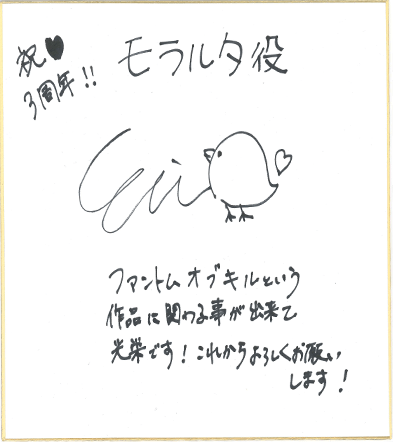 祝♥
3周年!!
モラルタ役
ファントムオブキルという
作品に関わる事が出来て
光栄です!これからよろしくお願い
します!